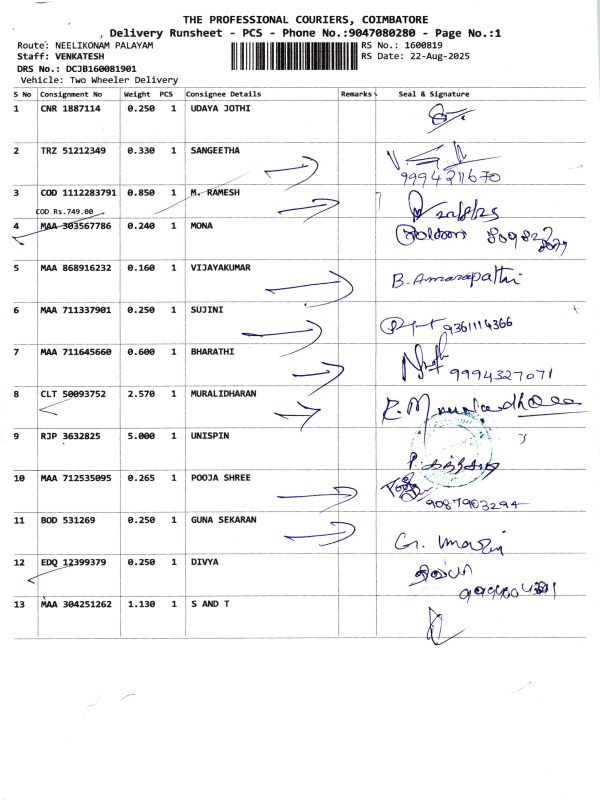 THE PROFESSIONAL COURIERS, COIMBATORE
Delivery Runsheet - PCS - Phone No.:9047080280 - Page No.:1
Route: NEELIKONAM PALAYAM RS No.: 1600819
Staff: VENKATESH RS Date: 22-Aug-2025
DRS No.: DCJB160081901
Vehicle: Two Wheeler Delivery
S No Consignment No Weight PCS Consignee Details Remarks Seal & Signature
1 CNR 1887114 0.250 1 UDAYA JOTHI
2 TRZ 51212349 0.330 1 SANGEETHA
9994211670
3 COD 1112283791 0.850 1 M. RAMESH
COD Rs.749.00
4 MAA 303567786 0.240 1 MONA
5 MAA 868916232 0.160 1 VIJAYAKUMAR
B. Amarapathi
6 MAA 711337901 0.250 1 SUJINI
9361114366
7 MAA 711645660 0.600 1 BHARATHI
9994327071
8 CLT 50093752 2.570 1 MURALIDHARAN
R. Muralidharan
9 RJP 3632825 5.000 1 UNISPIN
10 MAA 712535095 0.265 1 POOJA SHREE
9087903294
11 BOD 531269 0.250 1 GUNA SEKARAN
12 EDQ 12399379 0.250 1 DIVYA
13 MAA 304251262 1.130 1 S AND T